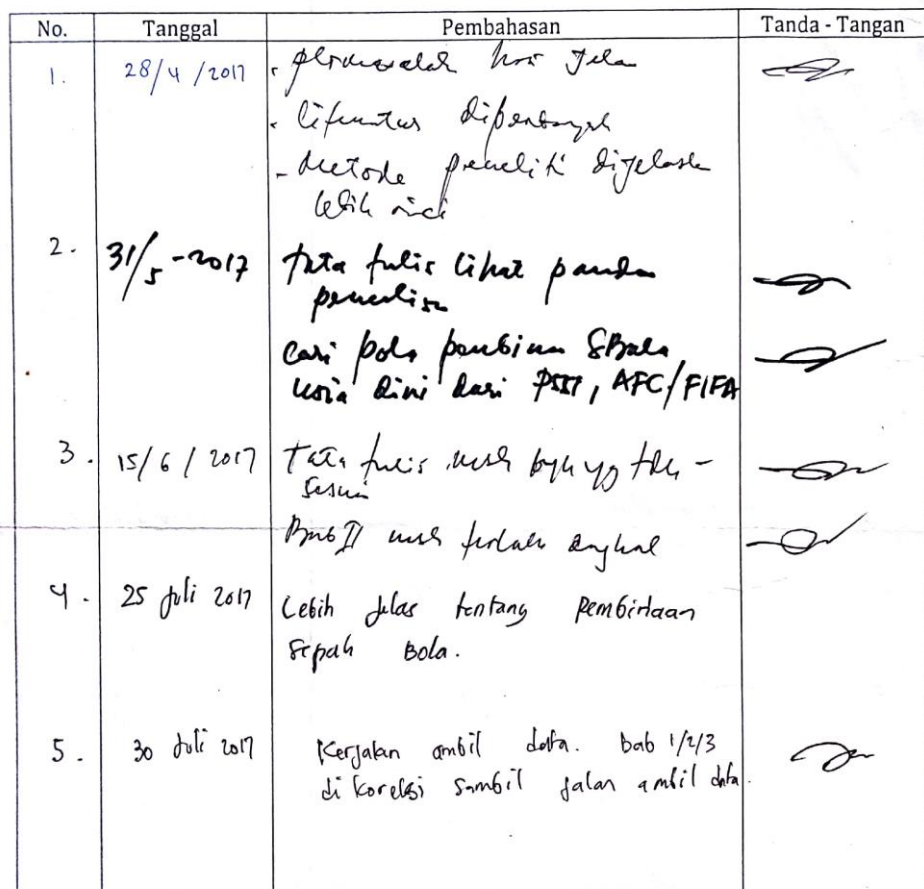 No. Tanggal Pembahasan Tanda - Tangan
1. 28/4/2017 - permasalah hrs jela
- literatur diperbanyak
- Metode peneliti dijelask
lebih rinci
2. 31/5-2017 tata tulis lihat pandu
penulisn
Cari pola pembinn SBola
usia dini dari PSSI, AFC/FIFA
3. 15/6/2017 Tata tulis msh byk yg tdk -
sesuai
Bab II msh terlalu dangkal
4. 25 Juli 2017 Lebih jelas tentang pembinaan
sepak Bola.
5. 30 Juli 2017 Kerjakan ambil data. bab 1/2/3
di koreksi sambil jalan ambil data.